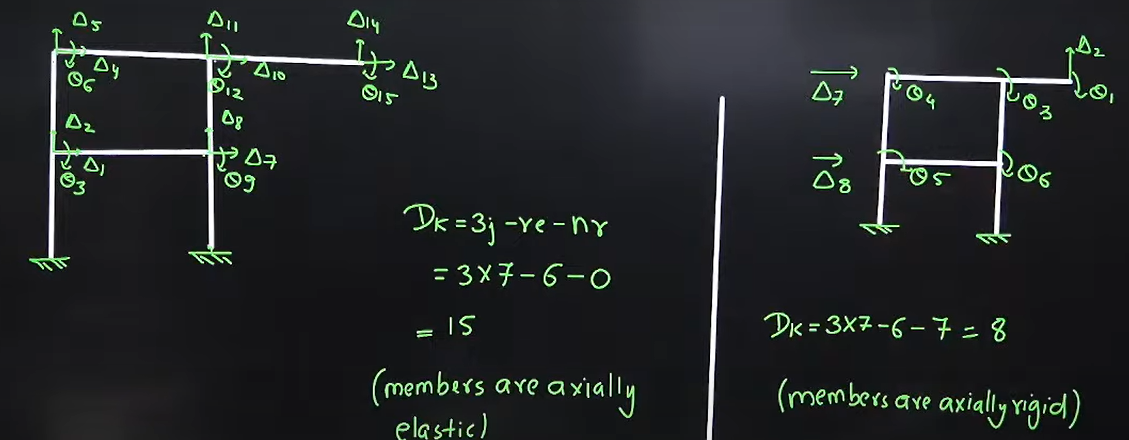 Δ5
Δ4
θ6
Δ11
Δ10
θ12
Δ14
Δ13
θ15
Δ2
Δ1
θ3
Δ8
Δ7
θ9
Dk = 3j - re - nr
= 3×7 - 6 - 0
= 15
(members are axially
elastic)
Δ7
θ4
θ3
Δ2
θ1
Δ8
θ5
θ6
Dk = 3×7 - 6 - 7 = 8
(members are axially rigid)